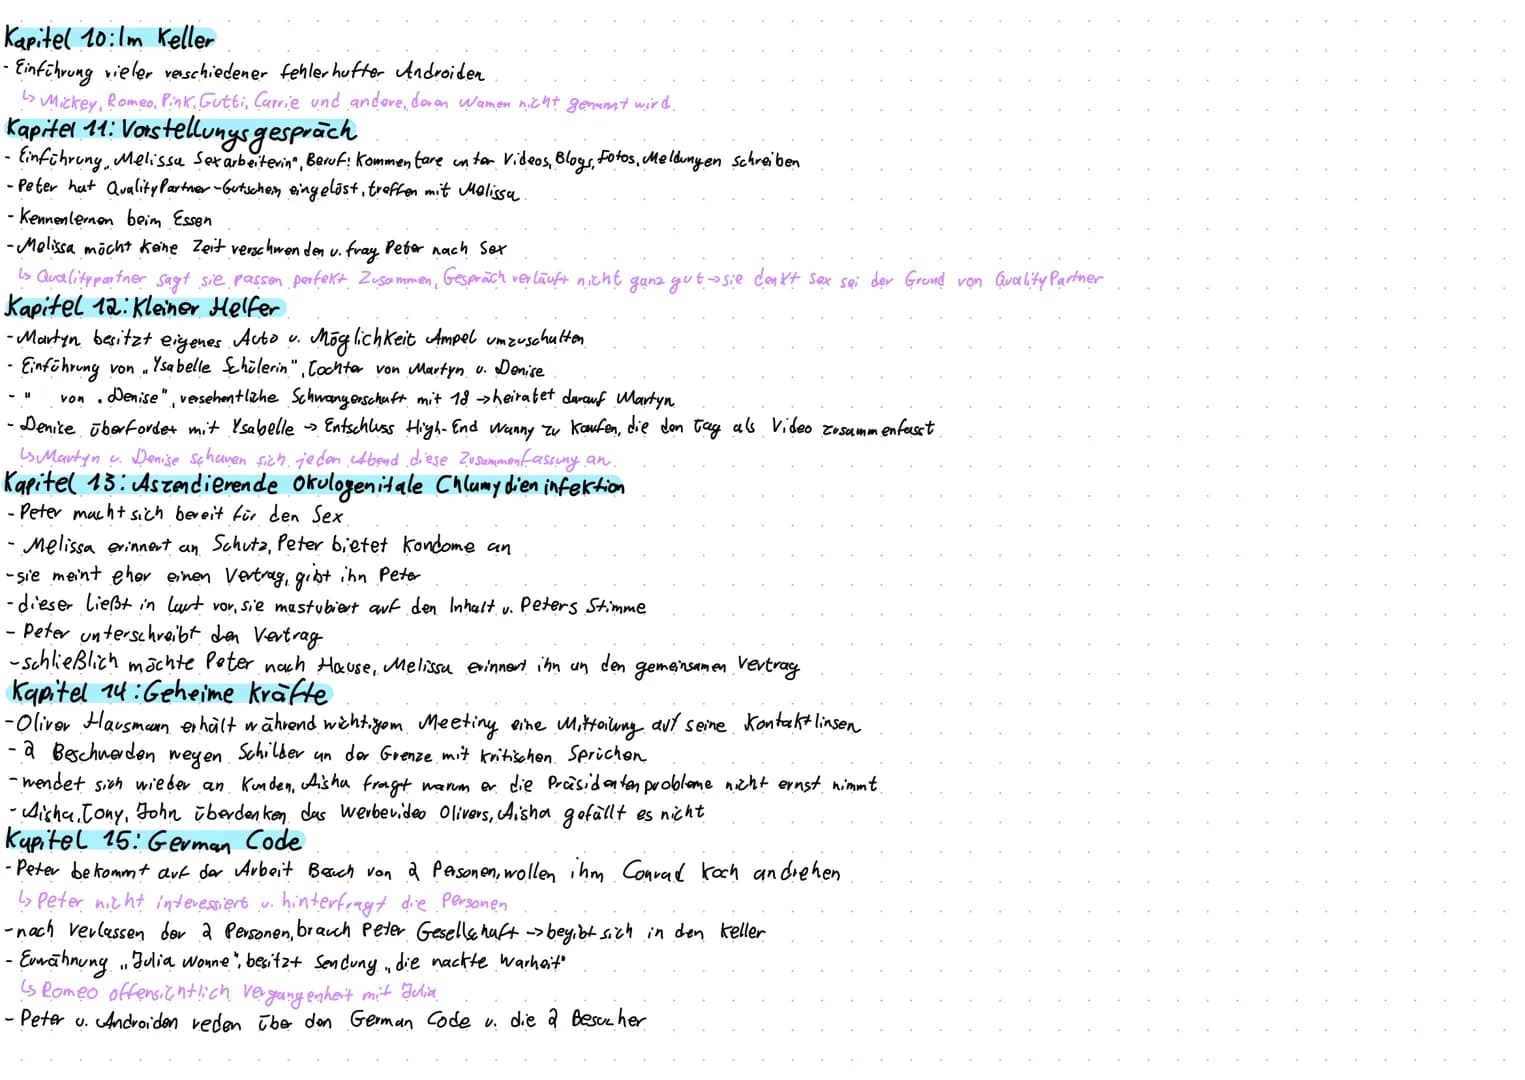 Kapitel 10: Im Keller
- Einführung vieler verschiedener fehlerhafter Androiden
↳ Mickey, Romeo, Pink, Gutti, Carrie und andere, deren Namen nicht genannt wird.
Kapitel 11: Vorstellungsgespräch
- Einführung „Melissa Sexarbeiterin", Beruf: Kommentare unter Videos, Blogs, Fotos, Meldungen schreiben
- Peter hat QualityPartner-Gutschein eingelöst, treffen mit Melissa
- Kennenlernen beim Essen
- Melissa möcht keine Zeit verschwenden u. frag Peter nach Sex
↳ Qualitypartner sagt sie passen perfekt Zusammen, Gespräch verläuft nicht ganz gut → sie denkt Sex sei der Grund von QualityPartner
Kapitel 12: Kleiner Helfer
- Martyn besitzt eigenes Auto u. Möglichkeit Ampel umzuschalten
- Einführung von „Ysabelle Schülerin", Tochter von Martyn u. Denise
- " von „Denise", versehentliche Schwangerschaft mit 18 → heiratet darauf Martyn
- Denise überfordet mit Ysabelle → Entschluss High-End Nanny zu kaufen, die den Tag als Video zusammenfasst
↳ Martyn u. Denise schauen sich jeden Abend diese Zusammenfassung an.
Kapitel 13: Aszendierende Okulogenitale Chlamydieninfektion
- Peter macht sich bereit für den Sex
- Melissa erinnert an Schutz, Peter bietet Kondome an
- sie meint eher einen Vertrag, gibt ihn Peter
- dieser ließt in laut vor, sie mastubiert auf den Inhalt u. Peters Stimme
- Peter unterschreibt den Vertrag
- schließlich möchte Peter nach Hause, Melissa erinnert ihn an den gemeinsamen Vertrag
Kapitel 14: Geheime Kräfte
- Oliver Hausmann erhält während wichtigem Meeting eine Mitteilung auf seine Kontaktlinsen
- 2 Beschwerden wegen Schilder an der Grenze mit kritischen Sprichen
- wendet sich wieder an Kunden, Aisha fragt warum er die Präsidentenprobleme nicht ernst nimmt
- Aisha, Tony, John überdenken das Werbevideo Olivers, Aisha gefällt es nicht
Kapitel 15: German Code
- Peter bekommt auf der Arbeit Besuch von 2 Personen, wollen ihm Conrad Koch andrehen
↳ Peter nicht interessiert u. hinterfragt die Personen
- nach Verlassen der 2 Personen, brauch Peter Gesellschaft → begibt sich in den Keller
- Erwähnung „Julia Nonne", besitzt Sendung „die nackte Warheit"
↳ Romeo offensichtlich Vergangenheit mit Julia
- Peter u. Androiden reden über den German Code u. die 2 Besucher